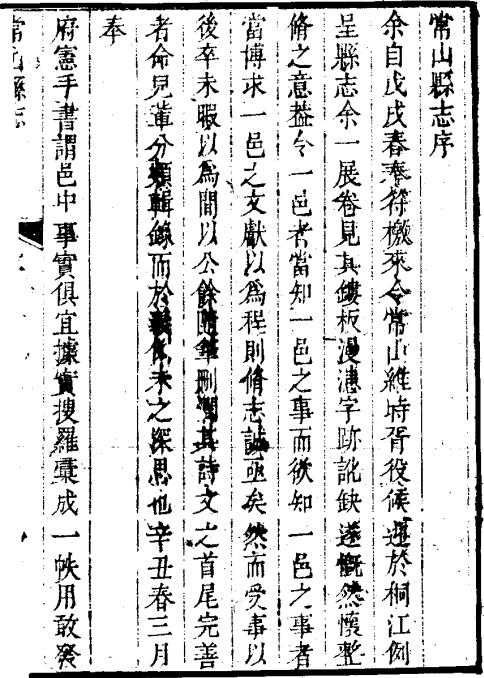 常山縣志序
余自戊戌春奉符檄來令常山維時胥役候迎於桐江例
呈縣志余一展卷見其鏤板漫漶字跡訛缺遂慨然懷整
脩之意蓋令一邑者當知一邑之事而欲知一邑之事者
當博求一邑之文獻以爲程則脩志誠亟矣然而受事以
後卒未暇以爲間以公餘隨筆刪潤其詩文之首尾完善
者命兒輩分類輯錄而於義例未之深思也辛丑春三月
奉
府憲手書謂邑中事實俱宜據實搜羅彚成一帙用敢發
常山縣志